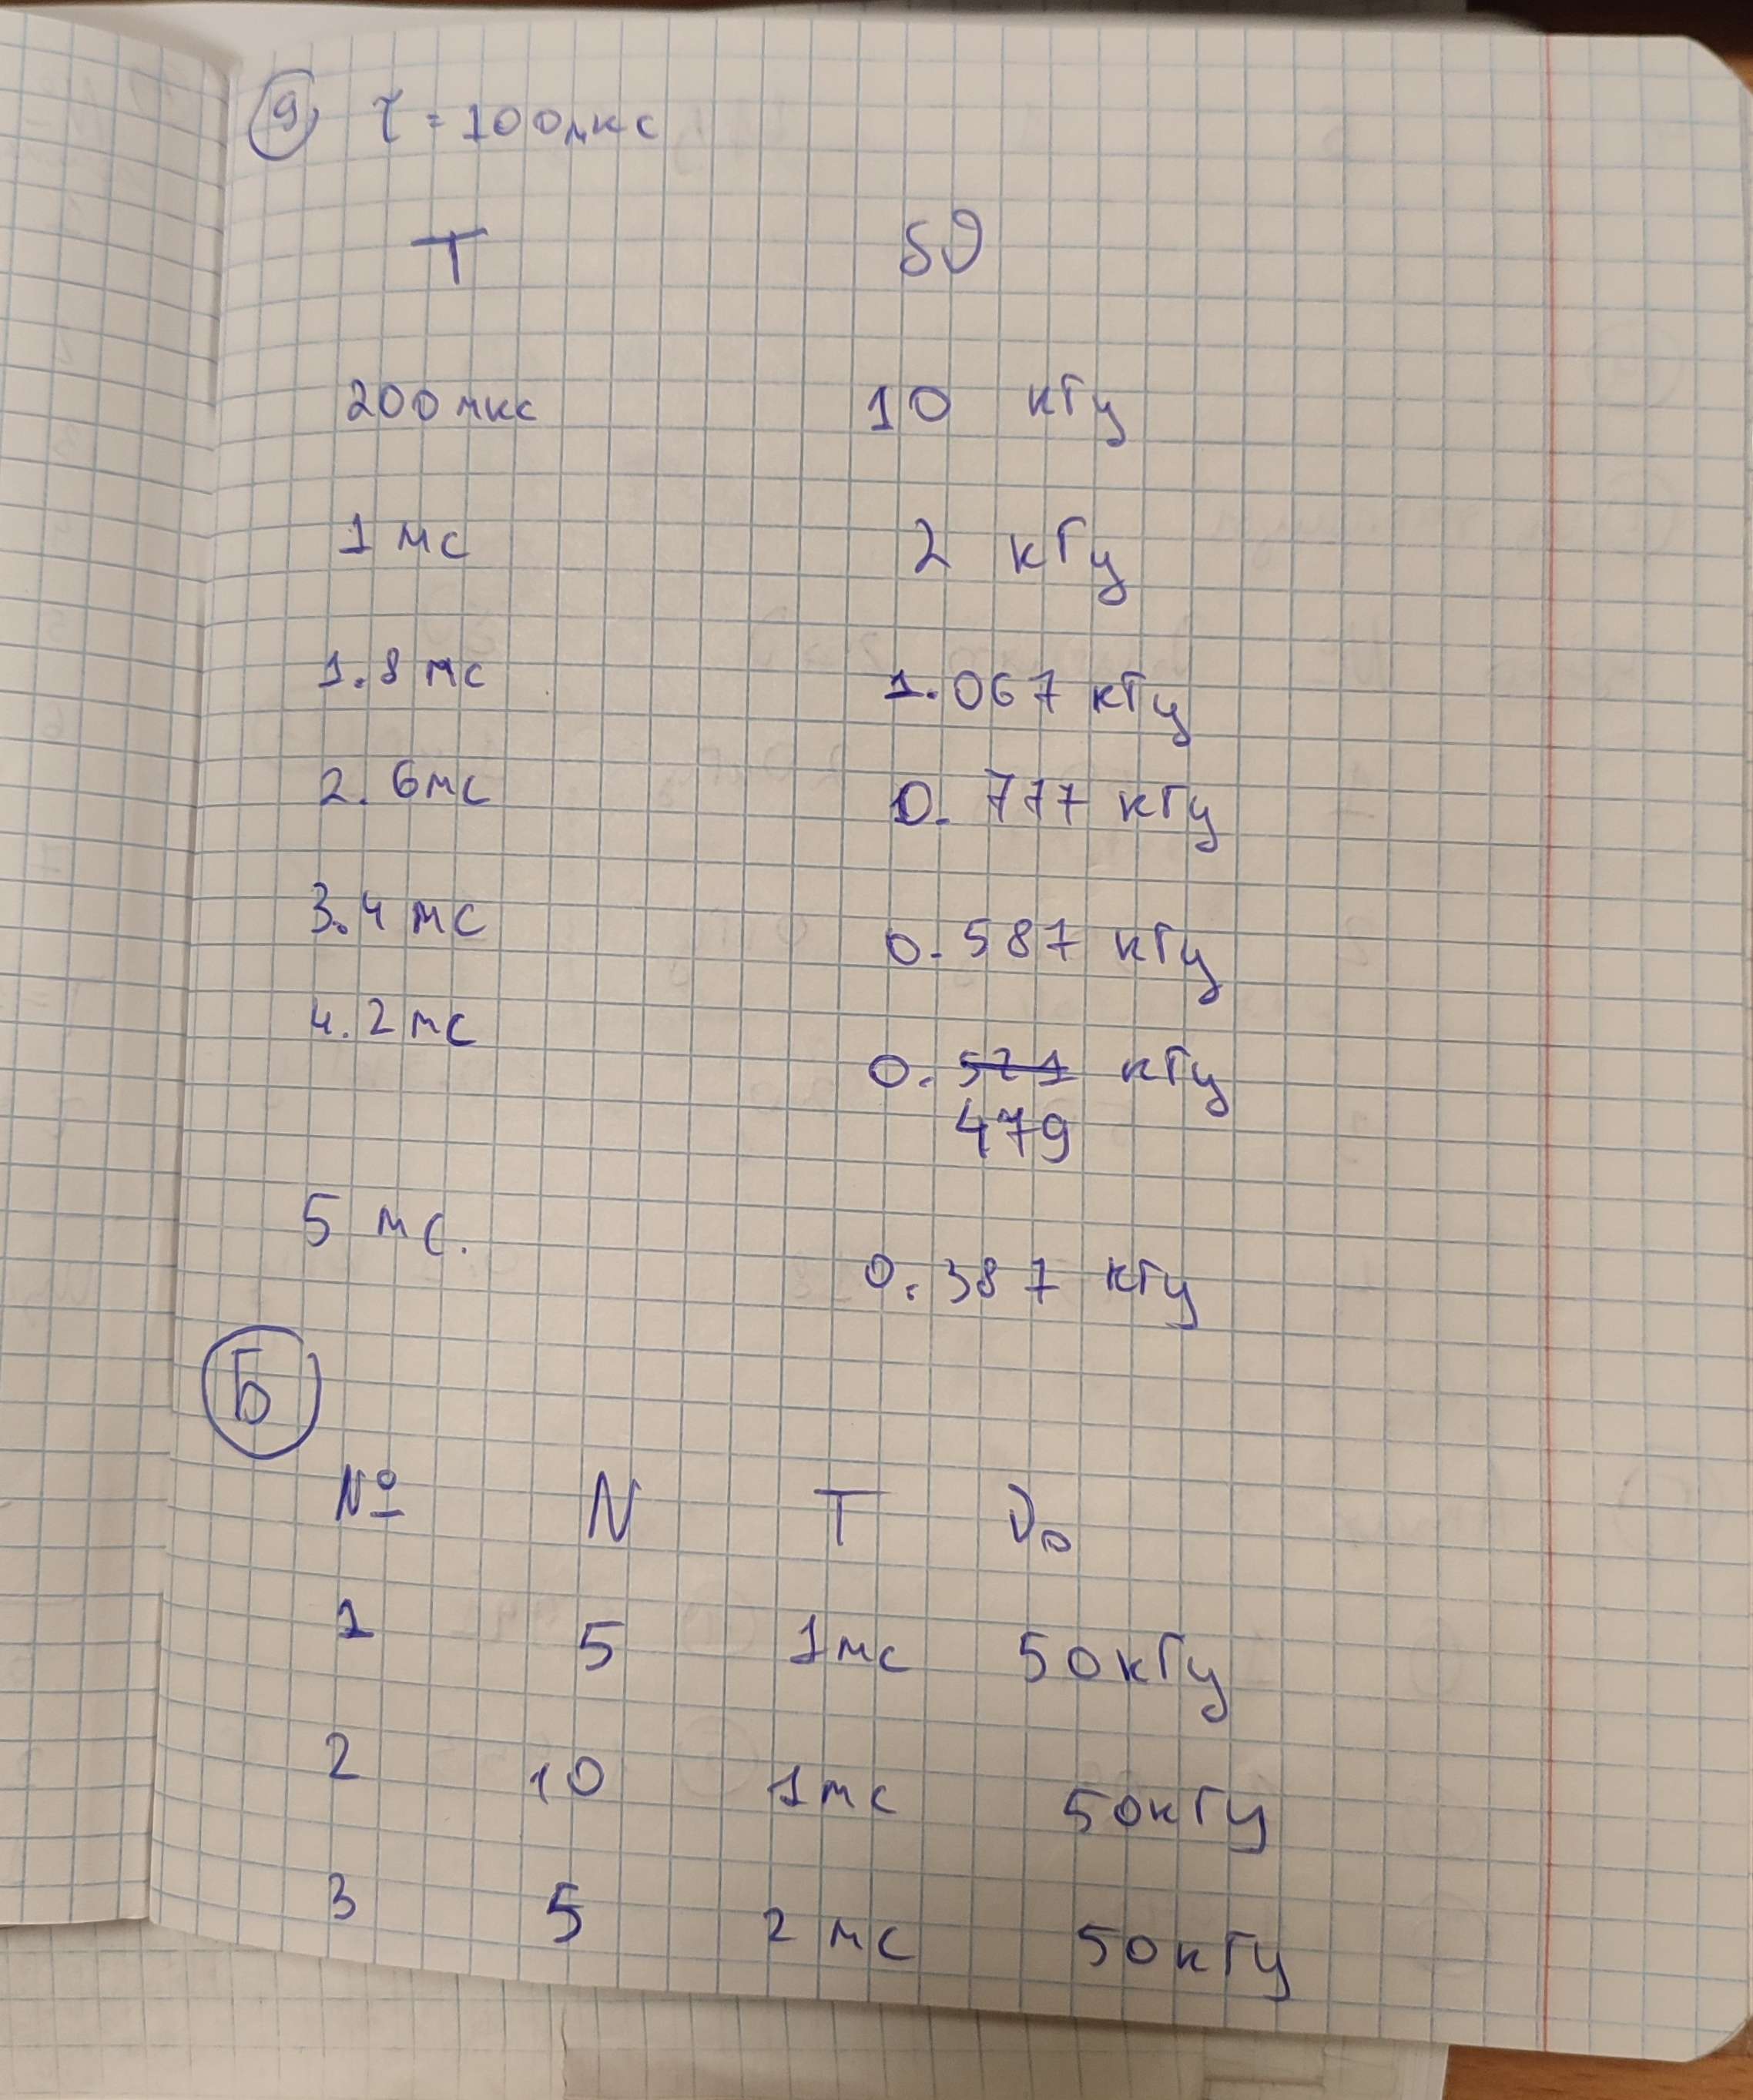 9) τ = 100мкс
T δν
200мкс 10 кГц
1 мс 2 кГц
1.8 мс 1.067 кГц
2.6мс 0.777 кГц
3.4 мс 0.587 кГц
4.2 мс 0.521 кГц
479
5 мс. 0.387 кГц
Б
№ N T ν₀
1 5 1мс 50кГц
2 10 1мс 50кГц
3 5 2 мс 50кГц